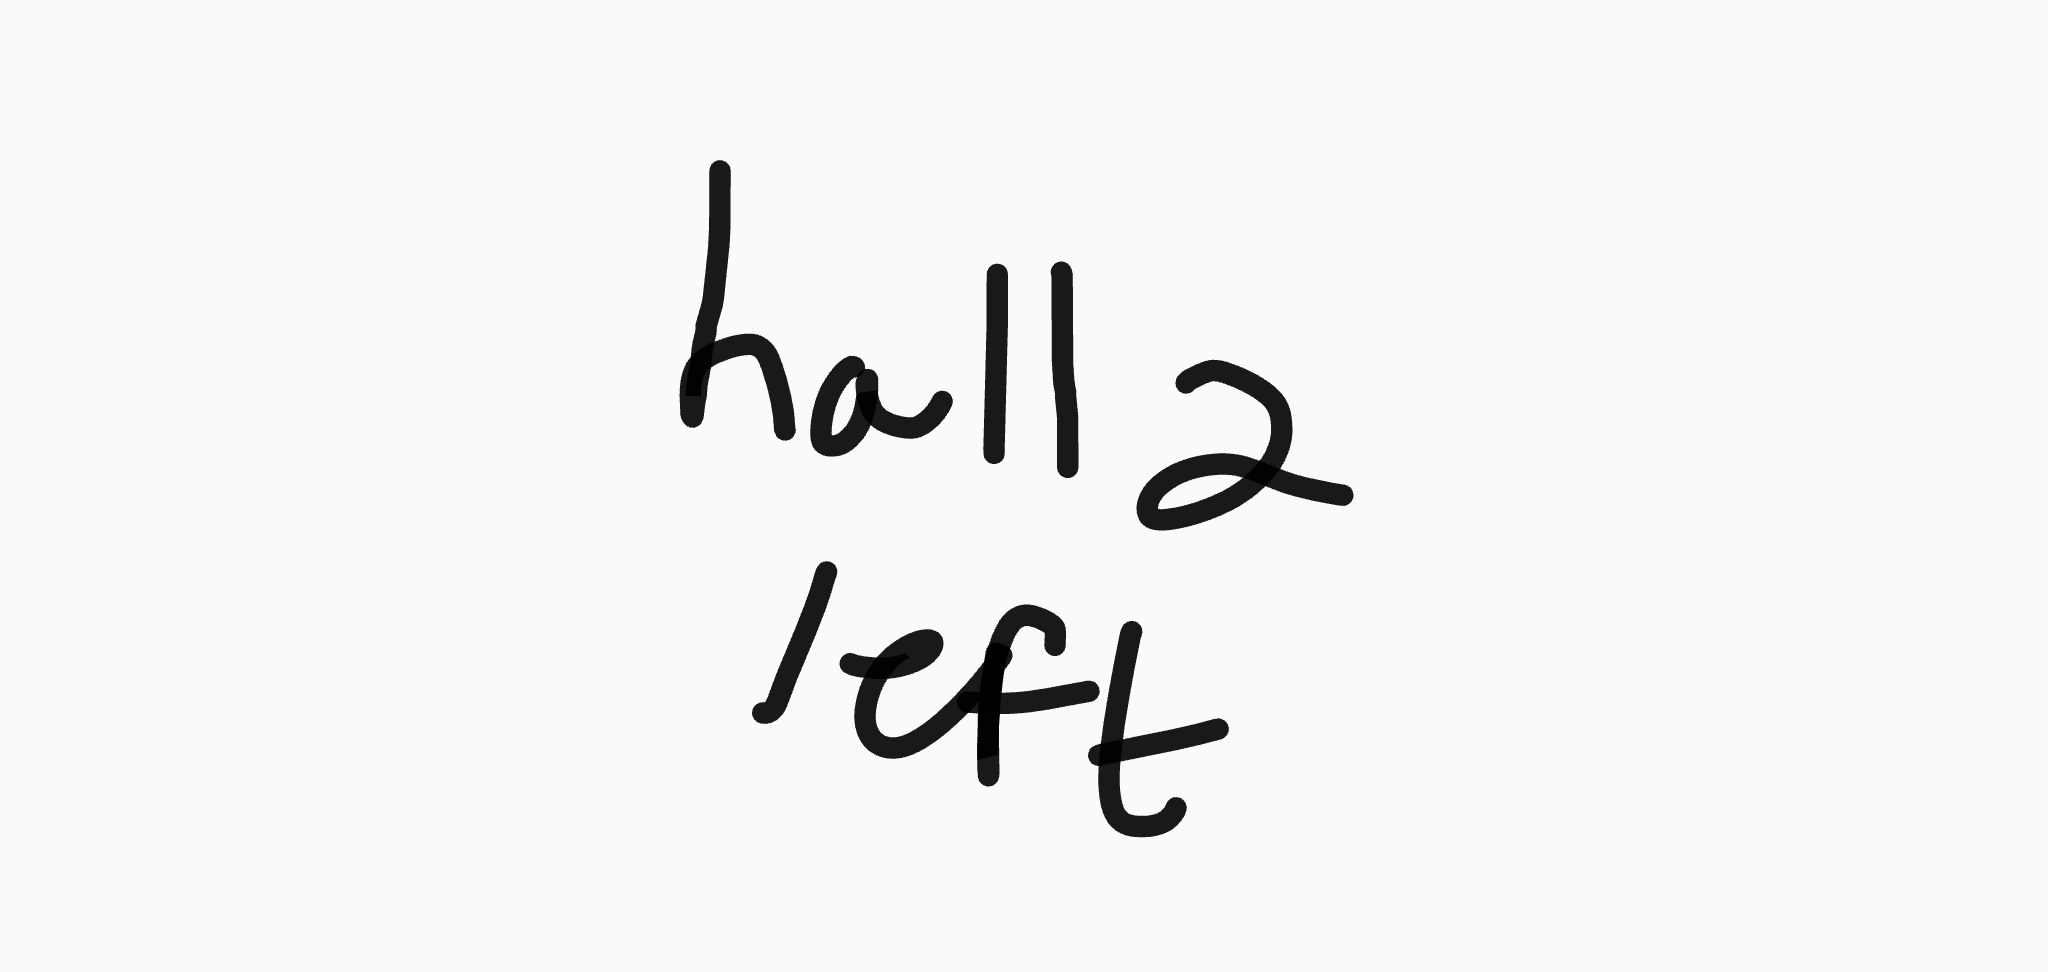 hall 2
left